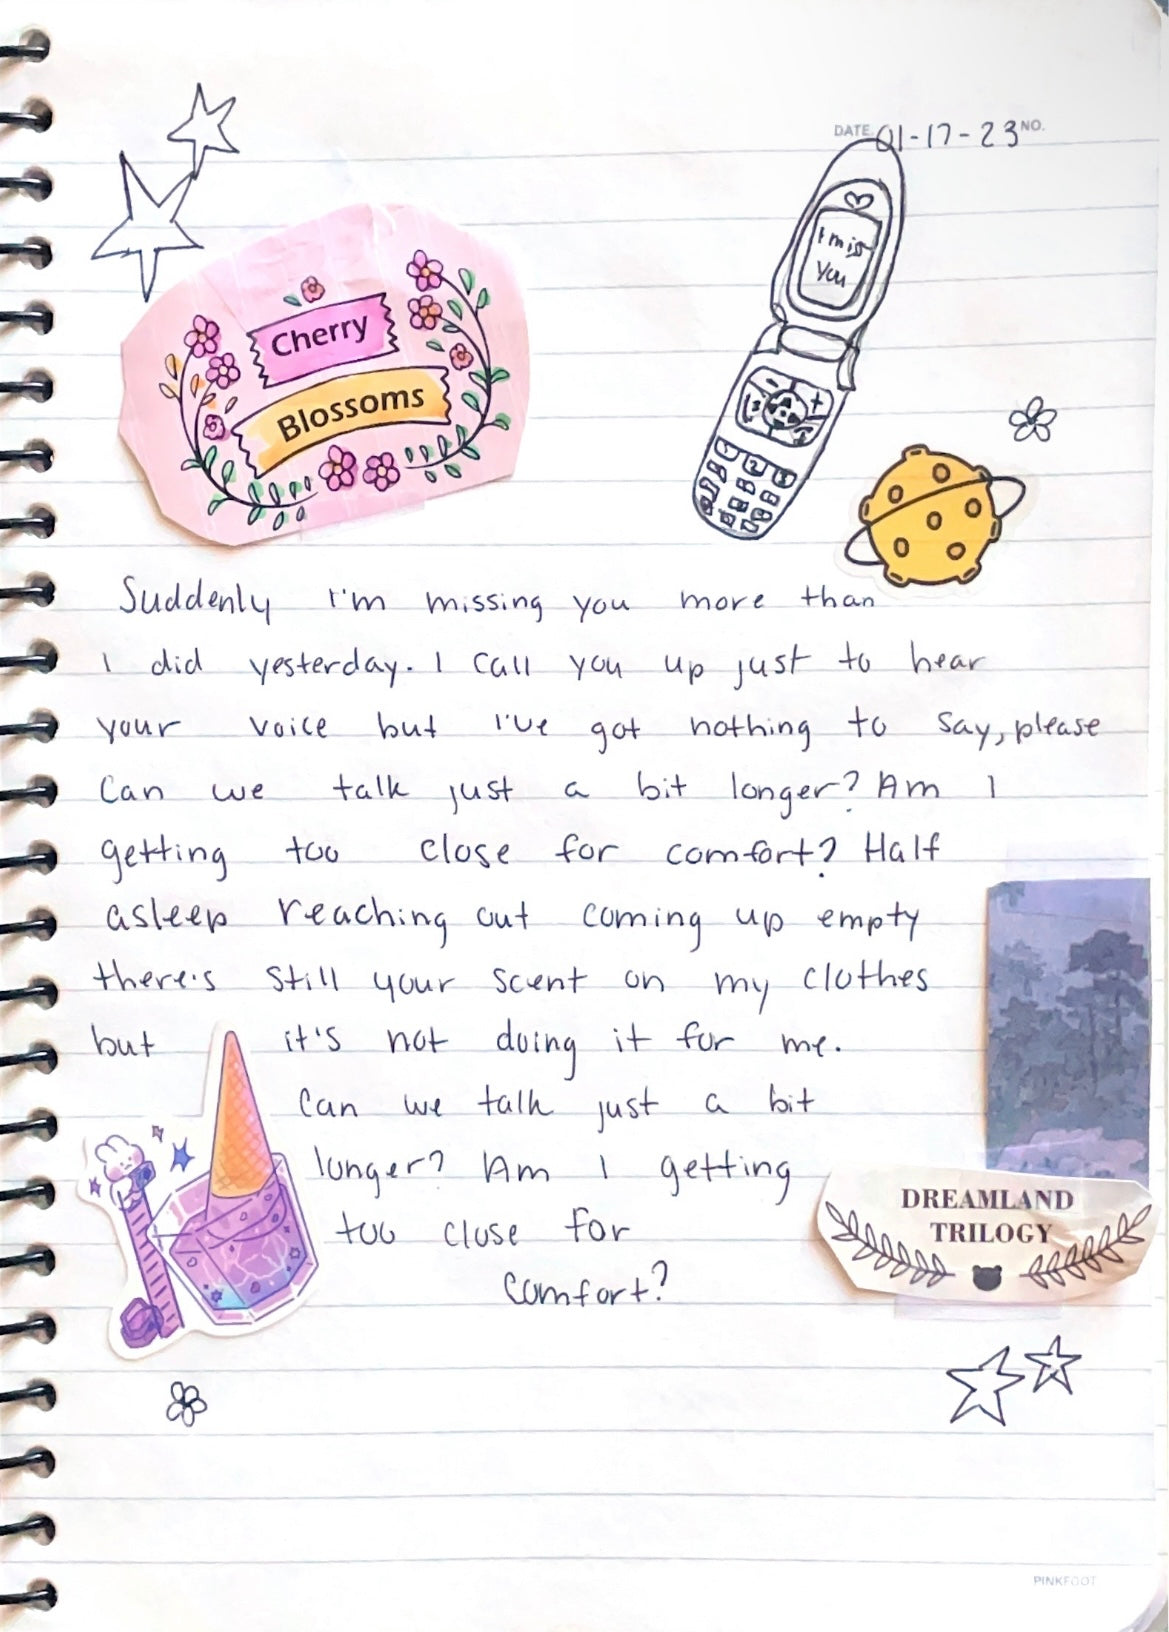 DATE 01-17-23 NO.
I miss
you
Cherry
Blossoms
1 2 3
Suddenly I'm missing you more than
I did yesterday. I call you up just to hear
your voice but I've got nothing to say, please
Can we talk just a bit longer? Am I
getting too close for comfort? Half
asleep reaching out coming up empty
there's still your scent on my clothes
but it's not doing it for me.
Can we talk just a bit
longer? Am I getting
too close for
comfort?
DREAMLAND
TRILOGY
PINKFOOT